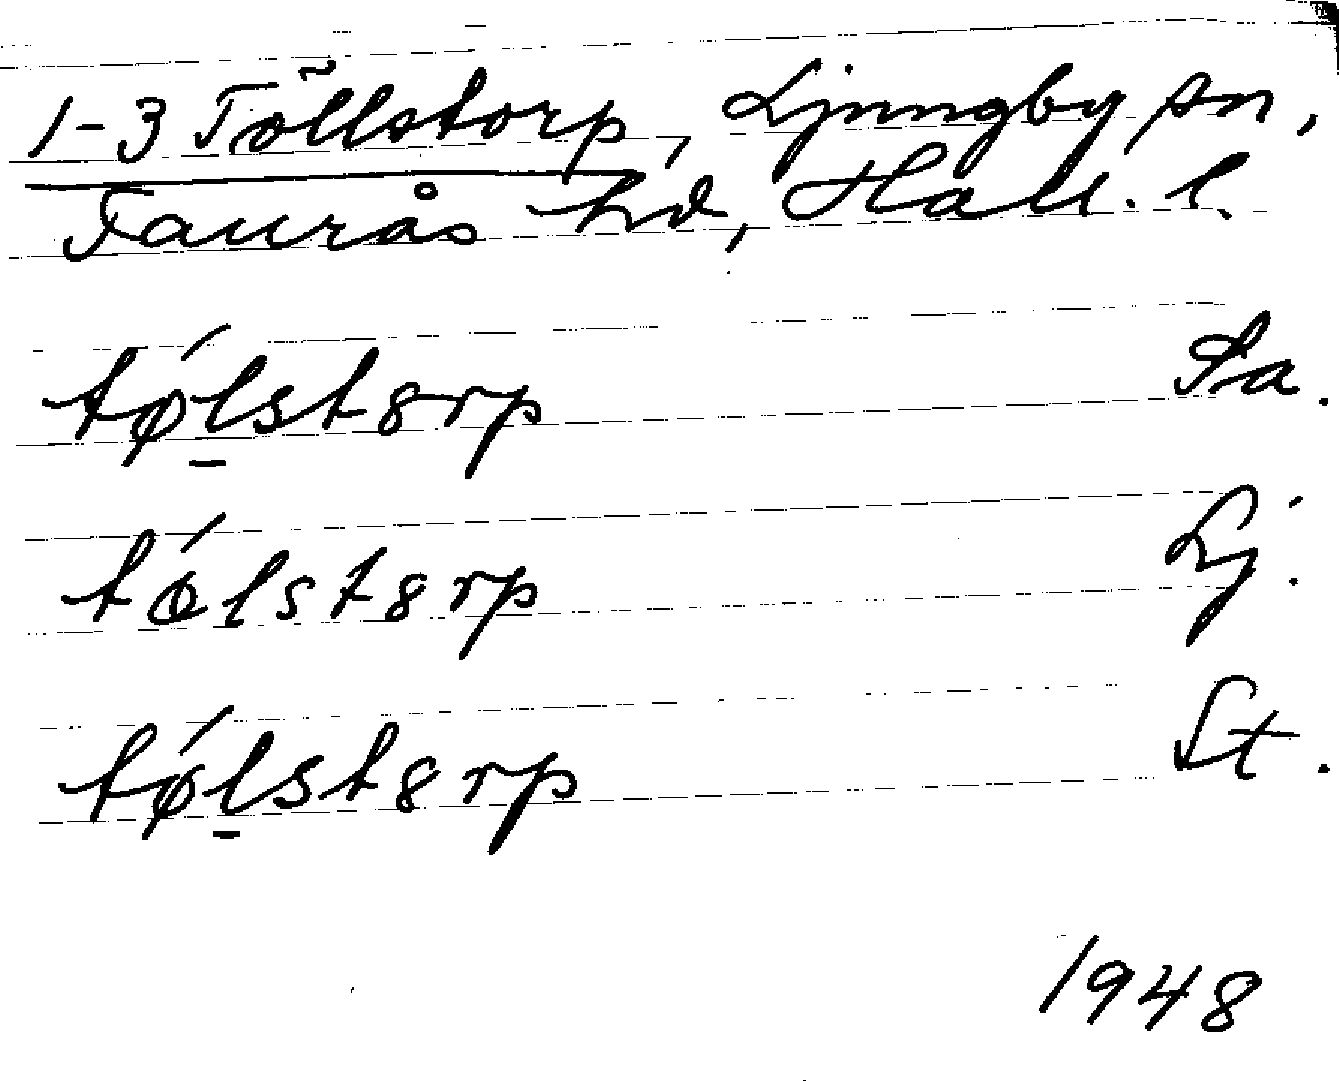 1-3 Töllstorp, Ljungby sn,
Faurås hd, Hall. l.
tǿl̲st8rp Sa.
tǿlst8rp Lj.
tǿl̲st8rp St.
1948